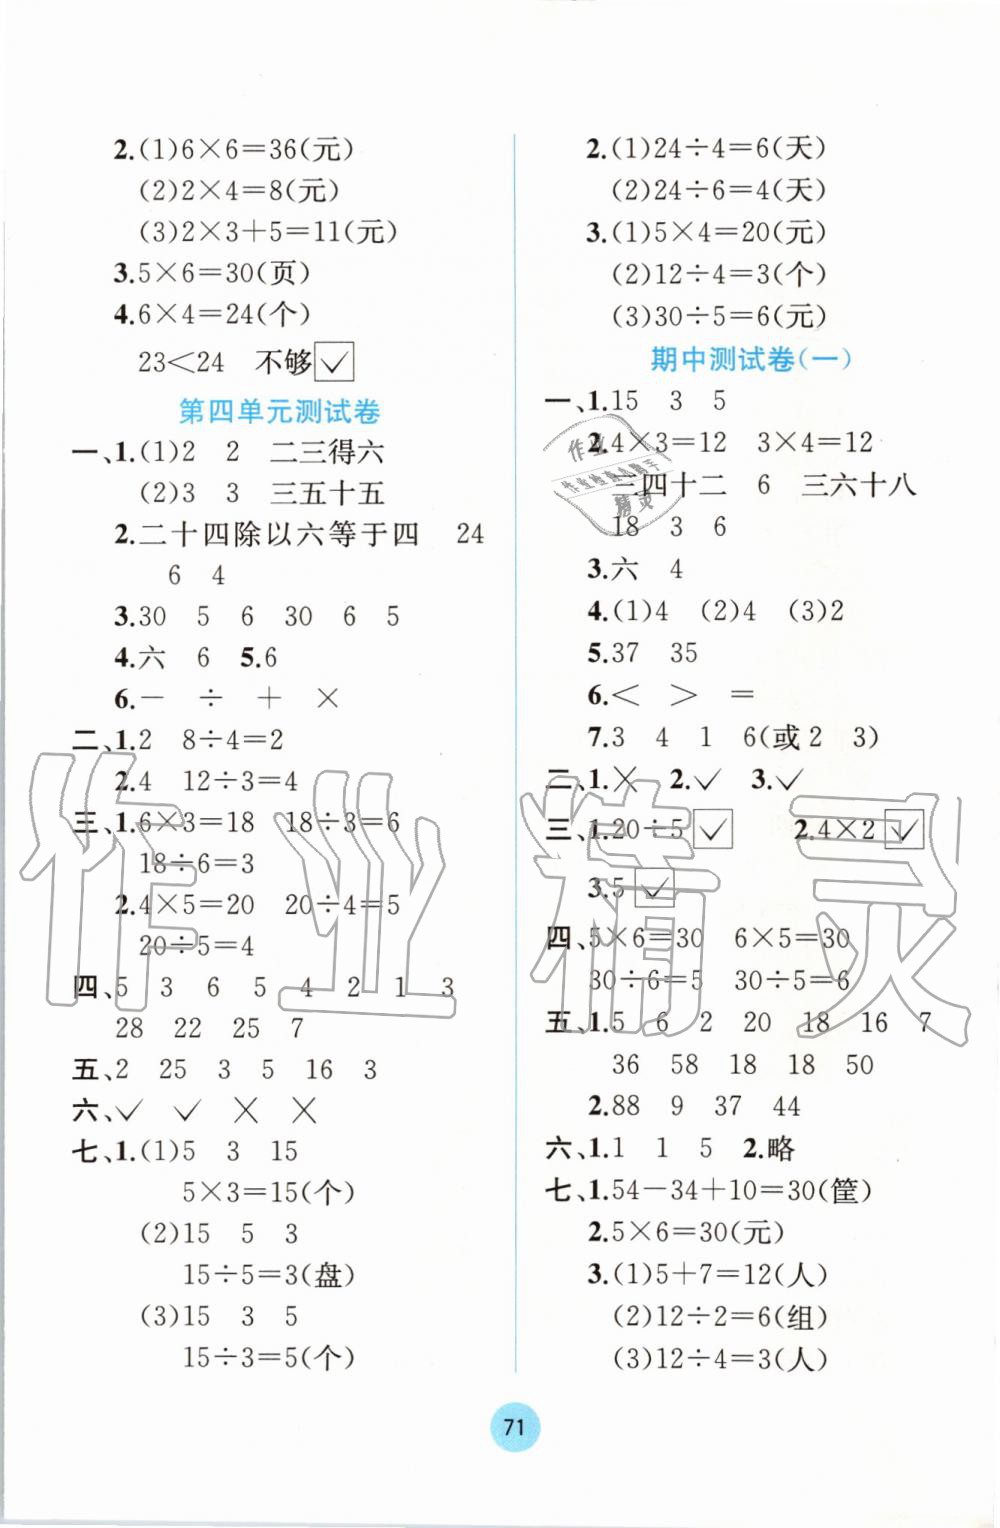 2.(1)6×6=36(元)
(2)2×4=8(元)
(3)2×3+5=11(元)
3.5×6=30(页)
4.6×4=24(个)
23<24 不够✓
第四单元测试卷
一、1.(1)2 2 二三得六
(2)3 3 三五十五
2.二十四除以六等于四 24
6 4
3.30 5 6 30 6 5
4.六 6 5.6
6.— ÷ + ×
二、1.2 8÷4=2
2.4 12÷3=4
三、1.6×3=18 18÷3=6
18÷6=3
2.4×5=20 20÷4=5
20÷5=4
四、5 3 6 5 4 2 1 3
28 22 25 7
五、2 25 3 5 16 3
六、✓ ✓ × ×
七、1.(1)5 3 15
5×3=15(个)
(2)15 5 3
15÷5=3(盘)
(3)15 3 5
15÷3=5(个)
2.(1)24÷4=6(天)
(2)24÷6=4(天)
3.(1)5×4=20(元)
(2)12÷4=3(个)
(3)30÷5=6(元)
期中测试卷(一)
一、1.15 3 5
2.4×3=12 3×4=12
三四十二 6 三六十八
18 3 6
3.六 4
4.(1)4 (2)4 (3)2
5.37 35
6.< > =
7.3 4 1 6(或2 3)
二、1.× 2.✓ 3.✓
三、1.20÷5✓ 2.4×2✓
3.5✓
四、5×6=30 6×5=30
30÷6=5 30÷5=6
五、1.5 6 2 20 18 16 7
36 58 18 18 50
2.88 9 37 44
六、1.1 1 5 2.略
七、1.54-34+10=30(筐)
2.5×6=30(元)
3.(1)5+7=12(人)
(2)12÷2=6(组)
(3)12÷4=3(人)
71
作业精灵
作业
精灵